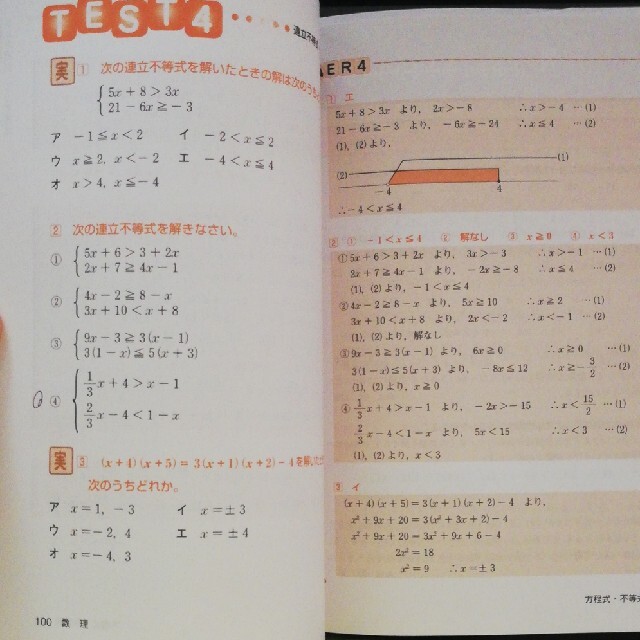 TEST4
連立不等式
実 1 次の連立不等式を解いたときの解は次のうち
5x+8>3x
21-6x≧-3
ア -1≦x<2 イ -2<x≦2
ウ x≧2, x<-2 エ -4<x≦4
オ x>4, x≦-4
2 次の連立不等式を解きなさい。
① 5x+6>3+2x
2x+7≧4x-1
② 4x-2≧8-x
3x+10<x+8
③ 9x-3≧3(x-1)
3(1-x)≦5(x+3)
④ 1/3x+4>x-1
2/3x-4<1-x
実 3 (x+4)(x+5)=3(x+1)(x+2)-4を解いた
次のうちどれか。
ア x=1, -3 イ x=±3
ウ x=-2, 4 エ x=±4
オ x=-4, 3
100 数 理
ER4
1 エ
5x+8>3x より, 2x>-8 ∴x>-4 …(1)
21-6x≧-3 より, -6x≧-24 ∴x≦4 …(2)
(1), (2)より,
(1)
(2)
-4 4
∴-4<x≦4
2 ① -1<x≦4 ② 解なし ③ x≧0 ④ x<3
①5x+6>3+2x より, 3x>-3 ∴x>-1 …(1)
2x+7≧4x-1 より, -2x≧-8 ∴x≦4 …(2)
(1), (2)より, -1<x≦4
②4x-2≧8-x より, 5x≧10 ∴x≧2 …(1)
3x+10<x+8 より, 2x<-2 ∴x<-1 …(2)
(1), (2)より, 解なし
③9x-3≧3(x-1) より, 6x≧0 ∴x≧0 …(1)
3(1-x)≦5(x+3) より, -8x≦12 ∴x≧-3/2 …(2)
(1), (2)より, x≧0
④1/3x+4>x-1 より, -2x>-15 ∴x<15/2 …(1)
2/3x-4<1-x より, 5x<15 ∴x<3 …(2)
(1), (2)より, x<3
3 イ
(x+4)(x+5)=3(x+1)(x+2)-4 より,
x²+9x+20=3(x²+3x+2)-4
x²+9x+20=3x²+9x+6-4
2x²=18
x²=9 ∴x=±3
方程式・不等式